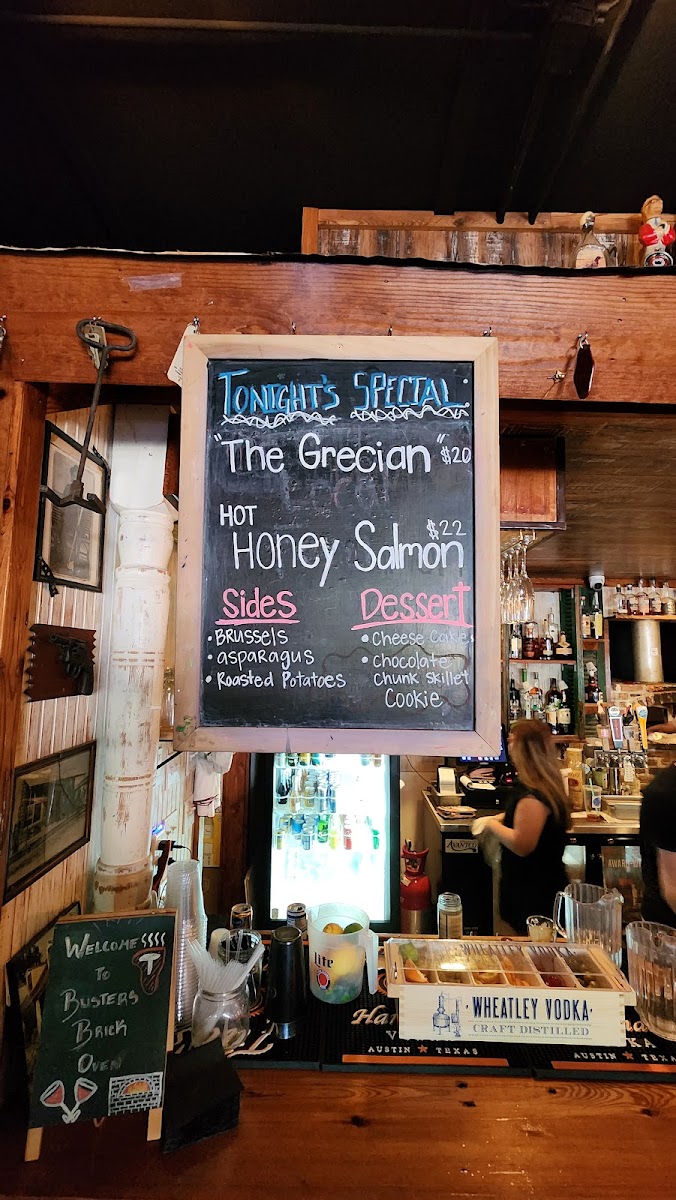 TONIGHT'S SPECIAL
"The Grecian" $20
HOT
Honey Salmon $22
Sides
• BRUSSELS
• asparagus
• Roasted Potatoes
Dessert
• Cheese Cake
• chocolate
chunk skillet
Cookie
WELCOME
TO
BUSTERS
BRICK
OVEN
lite
WHEATLEY VODKA
WHEATLEY VODKA
CRAFT DISTILLED
AUSTIN ★ TEXAS
AUSTIN ★ TEXAS